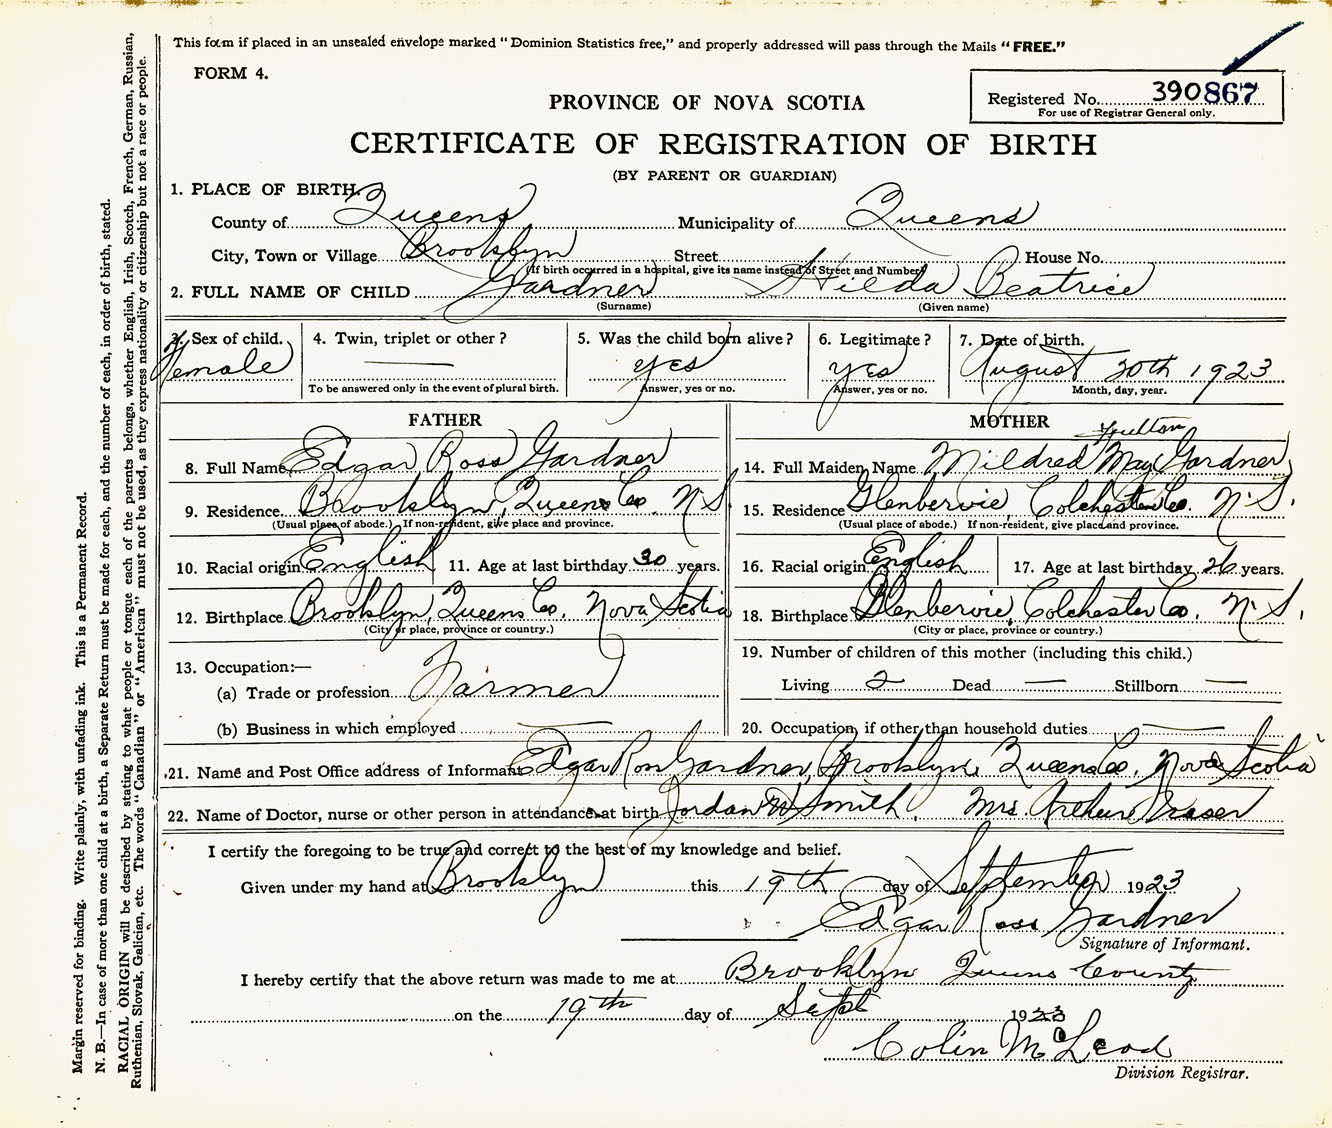 This form if placed in an unsealed envelope marked "Dominion Statistics free," and properly addressed will pass through the Mails "FREE."
FORM 4.
Registered No. 390867
For use of Registrar General only.
PROVINCE OF NOVA SCOTIA
CERTIFICATE OF REGISTRATION OF BIRTH
(BY PARENT OR GUARDIAN)
1. PLACE OF BIRTH
County of Queens Municipality of Queens
City, Town or Village Brooklyn Street House No.
(If birth occurred in a hospital, give its name instead of Street and Number)
2. FULL NAME OF CHILD Gardner Hilda Beatrice
(Surname) (Given name)
3. Sex of child. 4. Twin, triplet or other? 5. Was the child born alive? 6. Legitimate? 7. Date of birth.
Female — yes yes August 30th 1923
To be answered only in the event of plural birth. Answer, yes or no. Answer, yes or no. Month, day, year.
FATHER
8. Full Name Edgar Ross Gardner
9. Residence Brooklyn, Queens Co. N.S
(Usual place of abode.) If non-resident, give place and province.
10. Racial origin English 11. Age at last birthday 30 years.
12. Birthplace Brooklyn, Queens Co. Nova Scotia
(City or place, province or country.)
13. Occupation:—
(a) Trade or profession Farmer
(b) Business in which employed —
MOTHER
Fulton
14. Full Maiden Name Mildred May Gardner
15. Residence Glenbervie, Colchester Co. N.S.
(Usual place of abode.) If non-resident, give place and province.
16. Racial origin English 17. Age at last birthday 26 years.
18. Birthplace Glenbervie, Colchester Co. N.S.
(City or place, province or country.)
19. Number of children of this mother (including this child.)
Living 2 Dead — Stillborn —
20. Occupation, if other than household duties —
21. Name and Post Office address of Informant Edgar Ross Gardner, Brooklyn, Queens Co, Nova Scotia
22. Name of Doctor, nurse or other person in attendance at birth Jordan W Smith, Mrs. Arthur Fraser
I certify the foregoing to be true and correct to the best of my knowledge and belief.
Given under my hand at Brooklyn this 19th day of September 1923
Edgar Ross Gardner
Signature of Informant.
I hereby certify that the above return was made to me at Brooklyn Queens County
on the 19th day of Sept 1923
Colin McLeod
Division Registrar.
Margin reserved for binding. Write plainly, with unfading ink. This is a Permanent Record.
N. B.—In case of more than one child at a birth, a Separate Return must be made for each, and the number of each, in order of birth, stated.
RACIAL ORIGIN will be described by stating to what people or tongue each of the parents belongs, whether English, Irish, Scotch, French, German, Russian,
Ruthenian, Slovak, Galician, etc. The words "Canadian" or "American" must not be used, as they express nationality or citizenship but not a race or people.